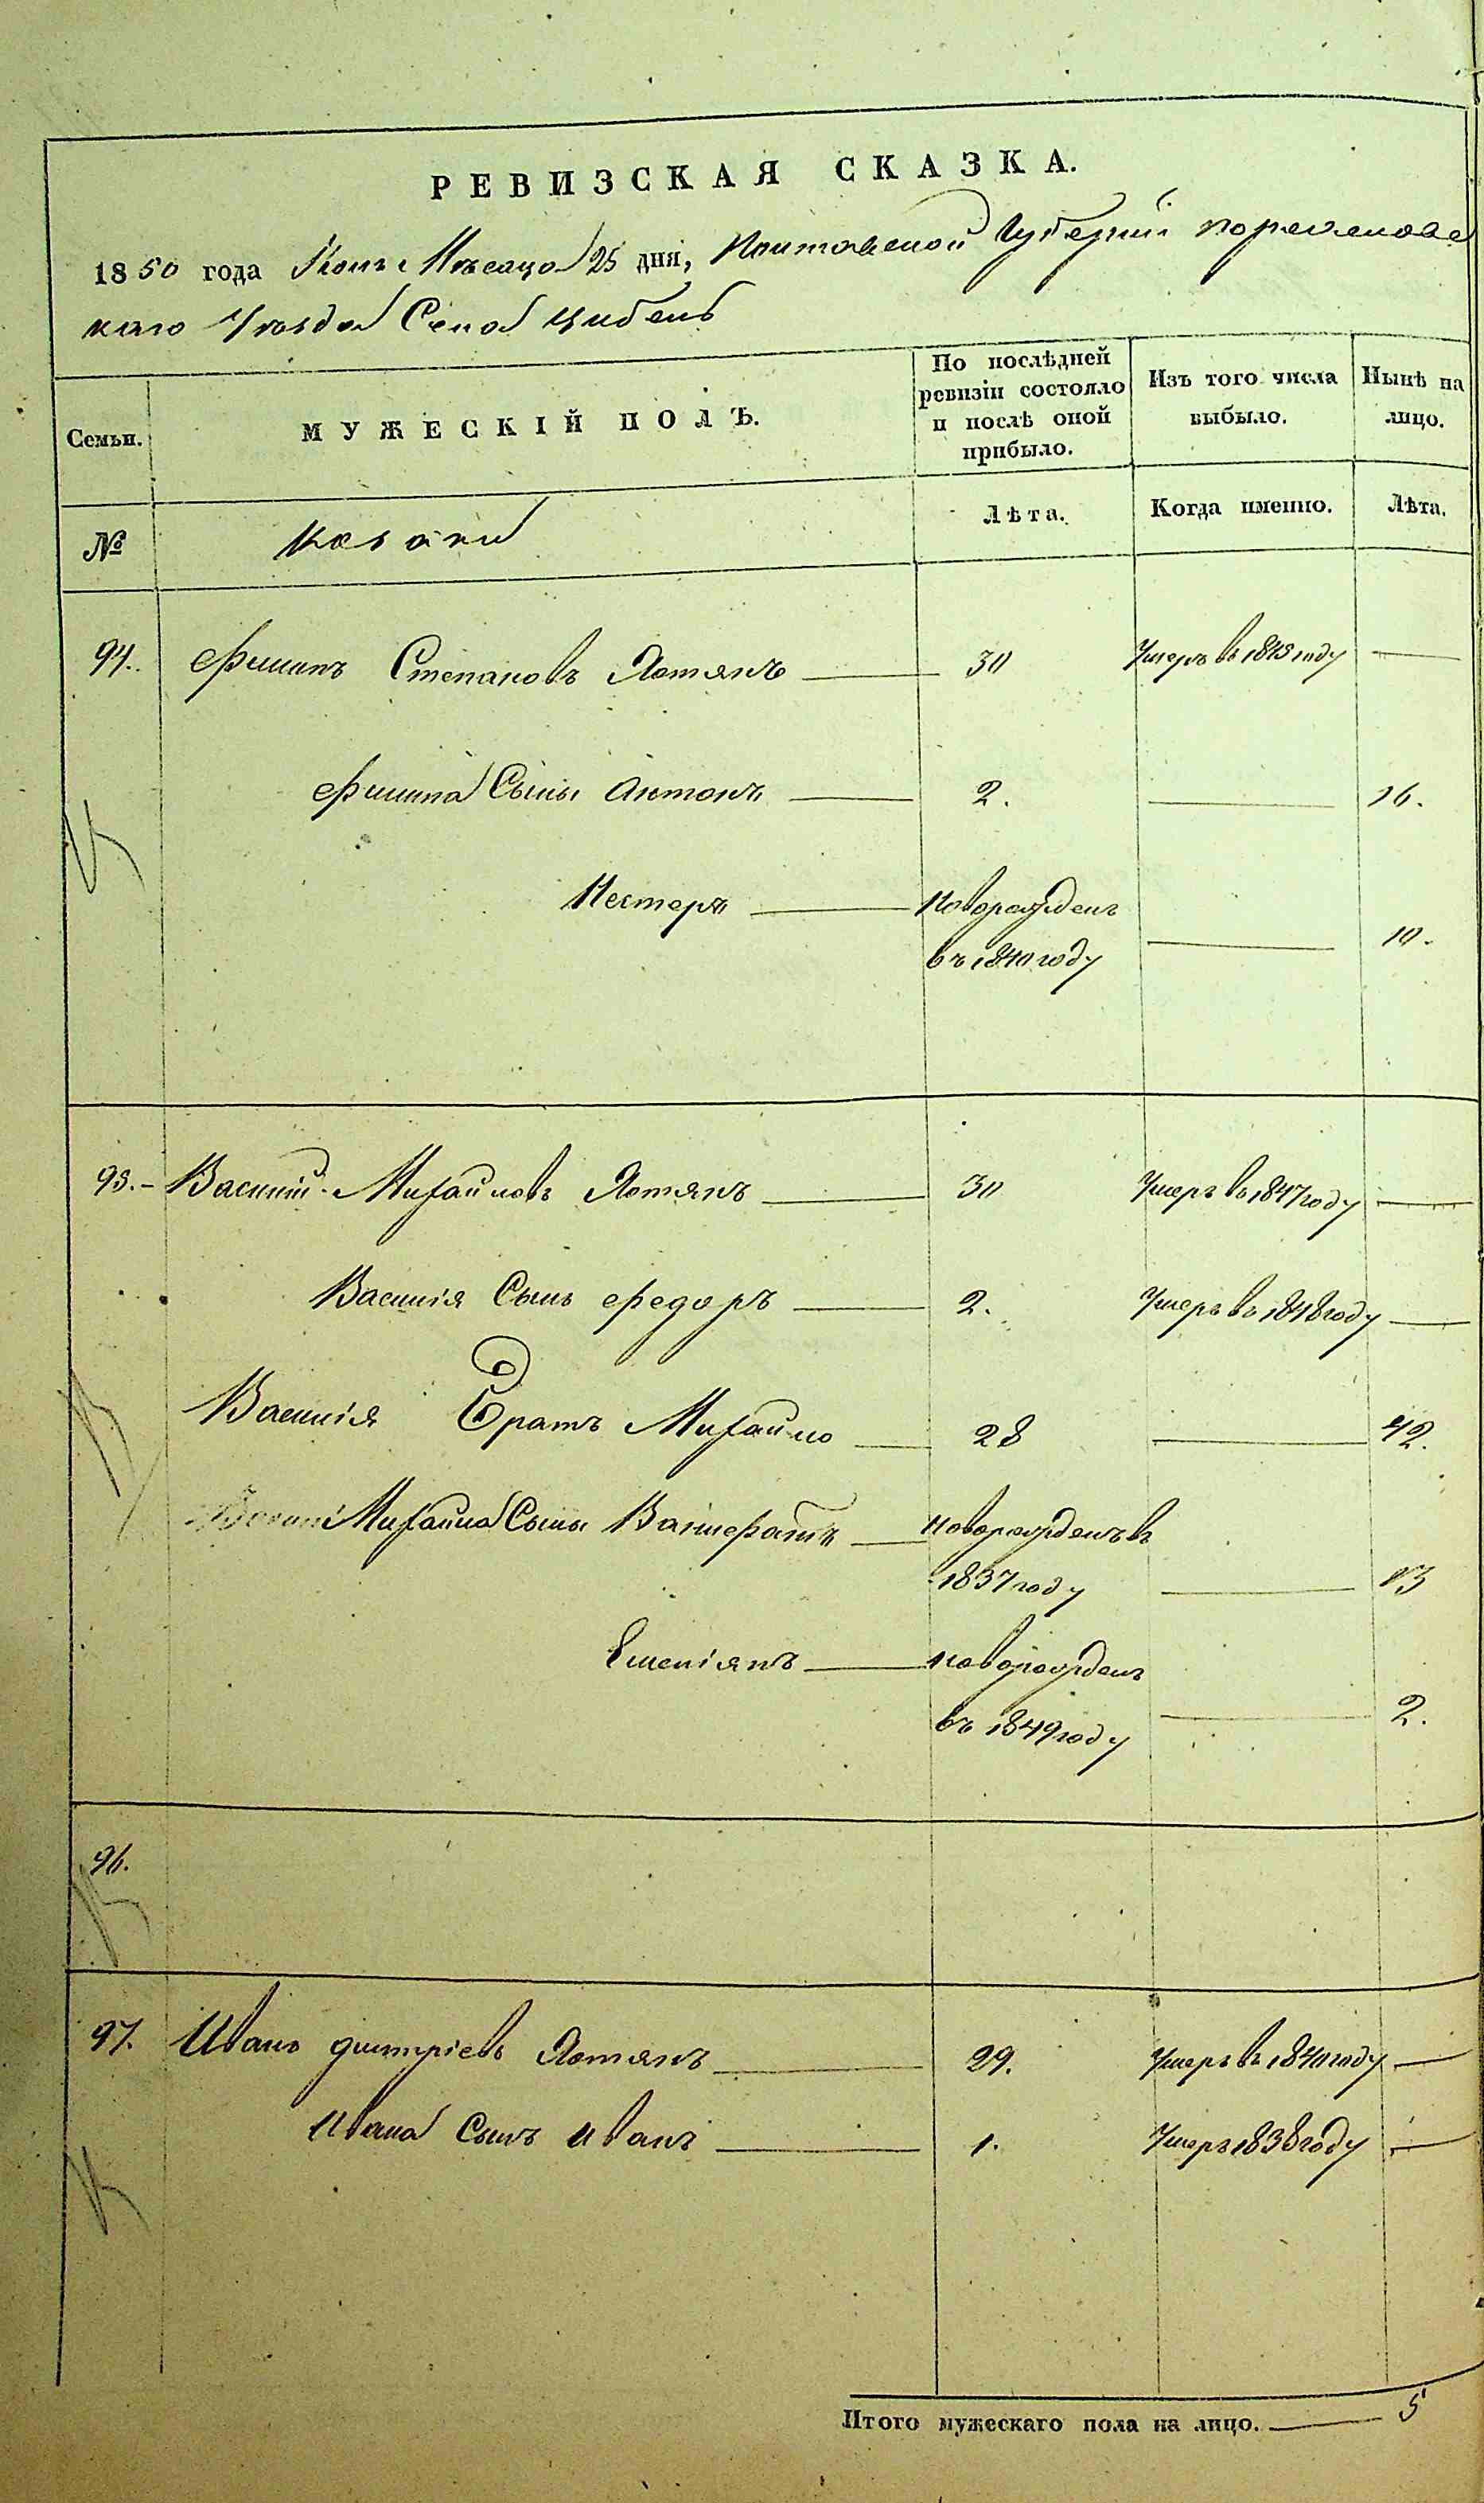 РЕВИЗСКАЯ СКАЗКА.
1850 года Мѣсяца 25 дня, Полтавской Губерніи
каго Уѣзда Села Цибель
Семьи.
МУЖЕСКІЙ ПОЛЪ.
По послѣдней ревизіи состояло и послѣ оной прибыло.
Изъ того числа выбыло.
Нынѣ на лицо.
№
Козаки
Лѣта.
Когда именно.
Лѣта.
94. Филипъ Степановъ Лотякъ 30 Умеръ въ 1845 году
Филипа Сыны Антонъ 2. 16.
Нестеръ Новорожденъ
въ 1840 году 10.
95. Василій Михайловъ Лотякъ 30 Умеръ въ 1847 году
Василія Сынъ Федоръ 2. Умеръ въ 1848 году
Василія Братъ Михайло 28 42.
Михайла Сыны новорожденъ въ
1837 году 13
Емеліянъ новорожденъ
въ 1849 году 2.
96.
97. Иванъ Дмитріевъ Лотякъ 29. Умеръ въ 1840 году
Ивана Сынъ Иванъ 1. Умеръ 1838 году
Итого мужескаго пола на лицо. 5